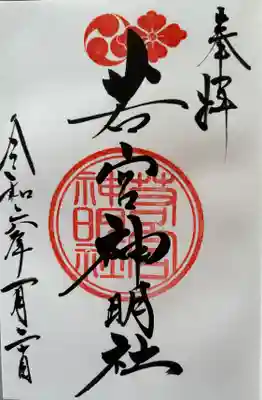 奉拝
若宮神明社
若宮神明社
令和六年一月二日